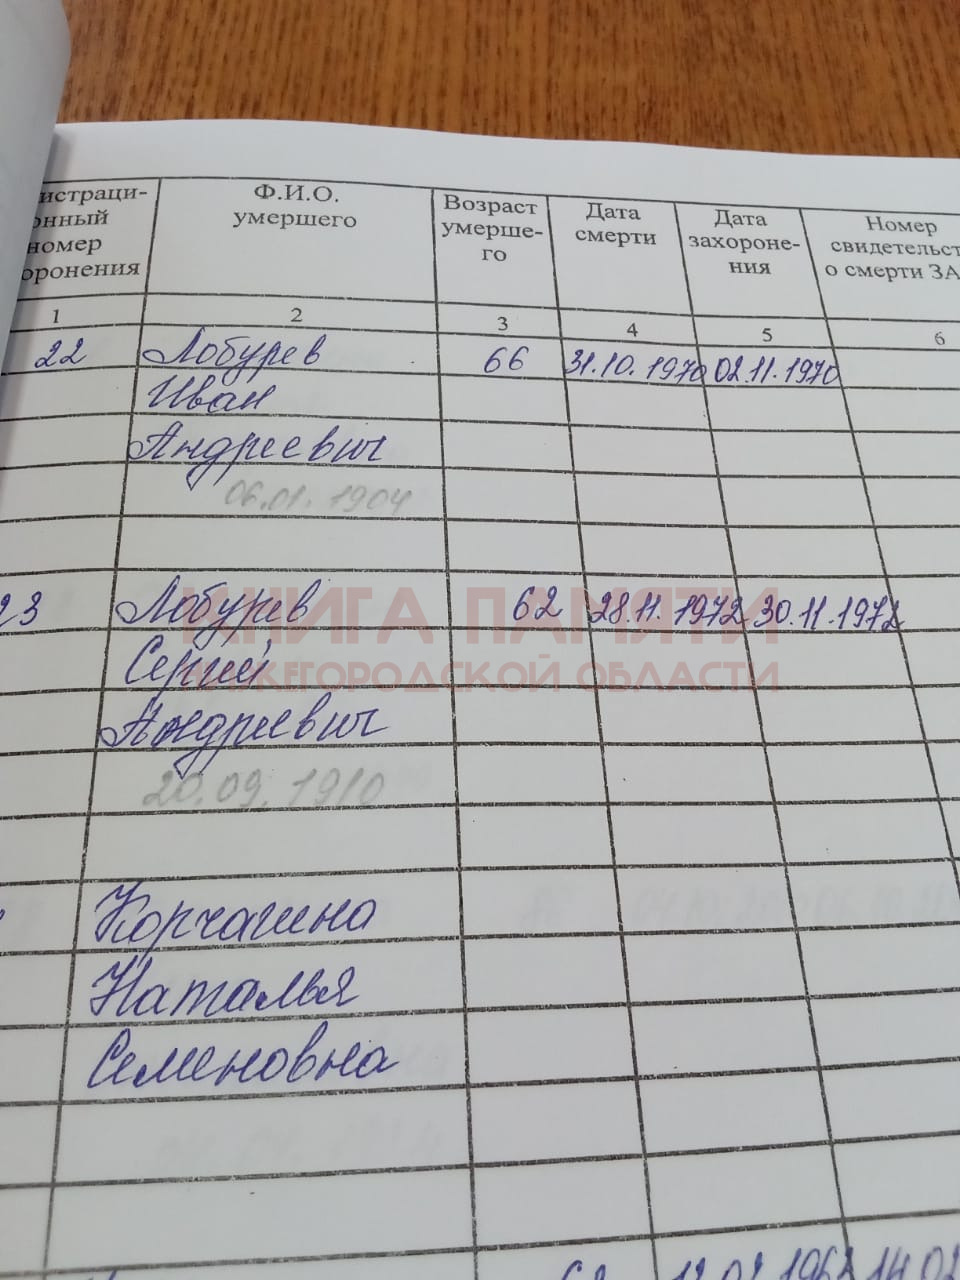 истраци-
онный
номер
оронения
Ф.И.О.
умершего
Возраст
умерше-
го
Дата
смерти
Дата
захороне-
ния
Номер
свидетельст
о смерти ЗА
1 2 3 4 5 6
22 Лобурев 66 31.10.1970 02.11.1970
Иван
Андреевич
06.01.1904
23 Лобурев 62 28.11.1972 30.11.1972
Сергей
Андреевич
20.09.1910
КНИГА ПАМЯТИ
НИЖЕГОРОДСКОЙ ОБЛАСТИ
Корчагина
Наталья
Семеновна
12.02.1962 14.02